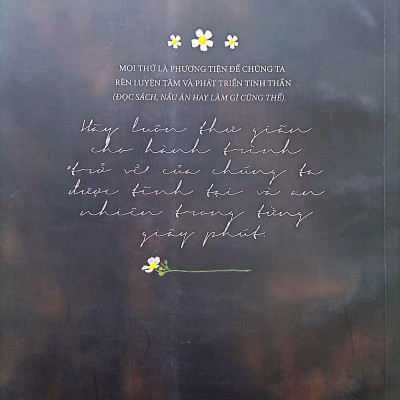 MỌI THỨ LÀ PHƯƠNG TIỆN ĐỂ CHÚNG TA
RÈN LUYỆN TÂM VÀ PHÁT TRIỂN TINH THẦN
(ĐỌC SÁCH, NẤU ĂN HAY LÀM GÌ CŨNG THẾ).
Hãy luôn thư giãn
cho hành trình
"trở về" của chúng ta
được tĩnh tại và an
nhiên trong từng
giây phút.